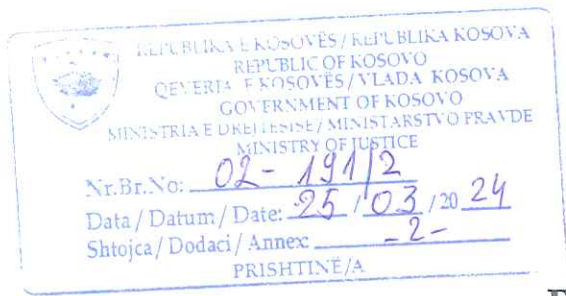 REPUBLIKA E KOSOVËS / REPUBLIKA KOSOVA
REPUBLIC OF KOSOVO
QEVERIA E KOSOVËS / VLADA KOSOVA
GOVERNMENT OF KOSOVO
MINISTRIA E DREJTËSISË / MINISTARSTVO PRAVDE
MINISTRY OF JUSTICE
Nr.Br.No: 02-191/2
Data / Datum / Date: 25 / 03 / 20 24
Shtojca / Dodaci / Annex: -2-
PRISHTINË/A